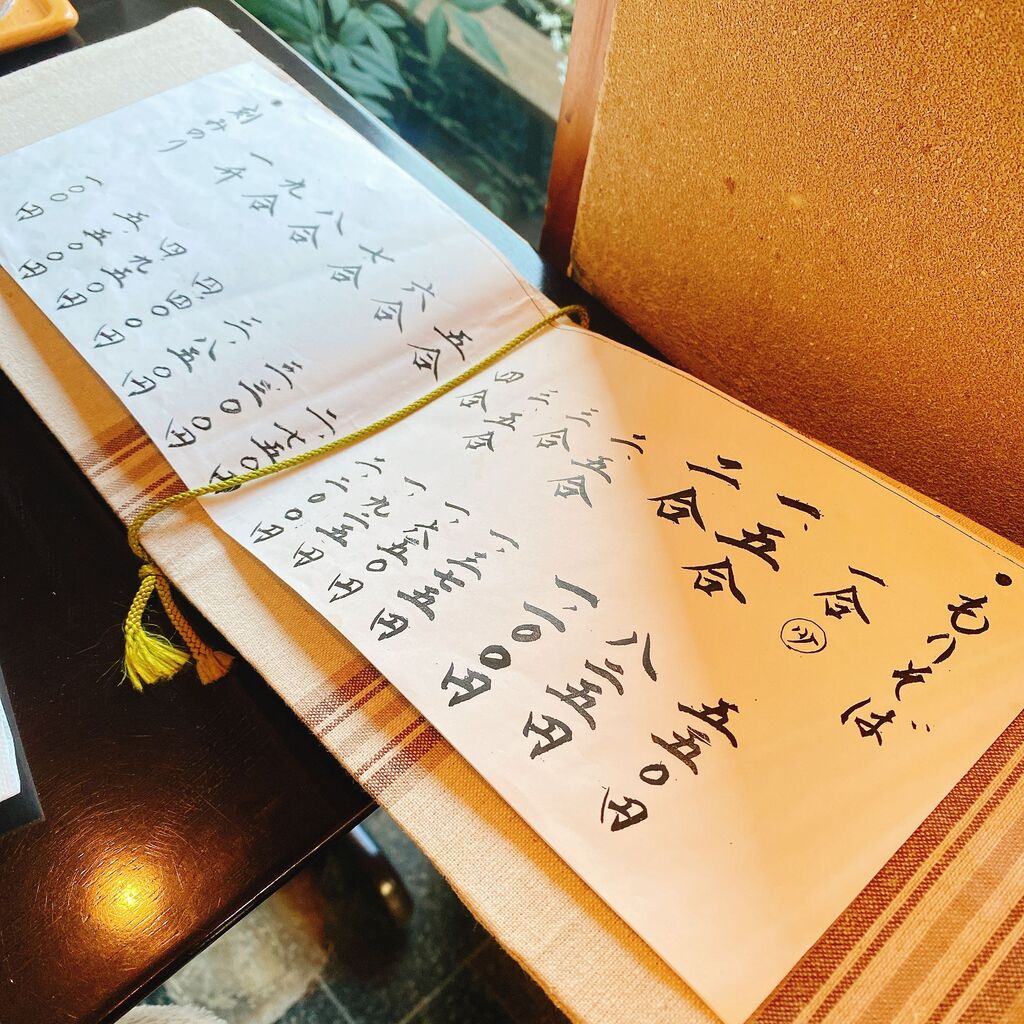 ・もりそば
一合 五五〇円
一、五合 八二五円
二合 一、一〇〇円
二、五合 一、三七五円
三合 一、六五〇円
三、五合 一、九二五円
四合 二、二〇〇円
五合 二、七五〇円
六合 三、三〇〇円
七合 三、八五〇円
八合 四、四〇〇円
九合 四、九五〇円
一升 五、五〇〇円
・刻みのり 一〇〇円